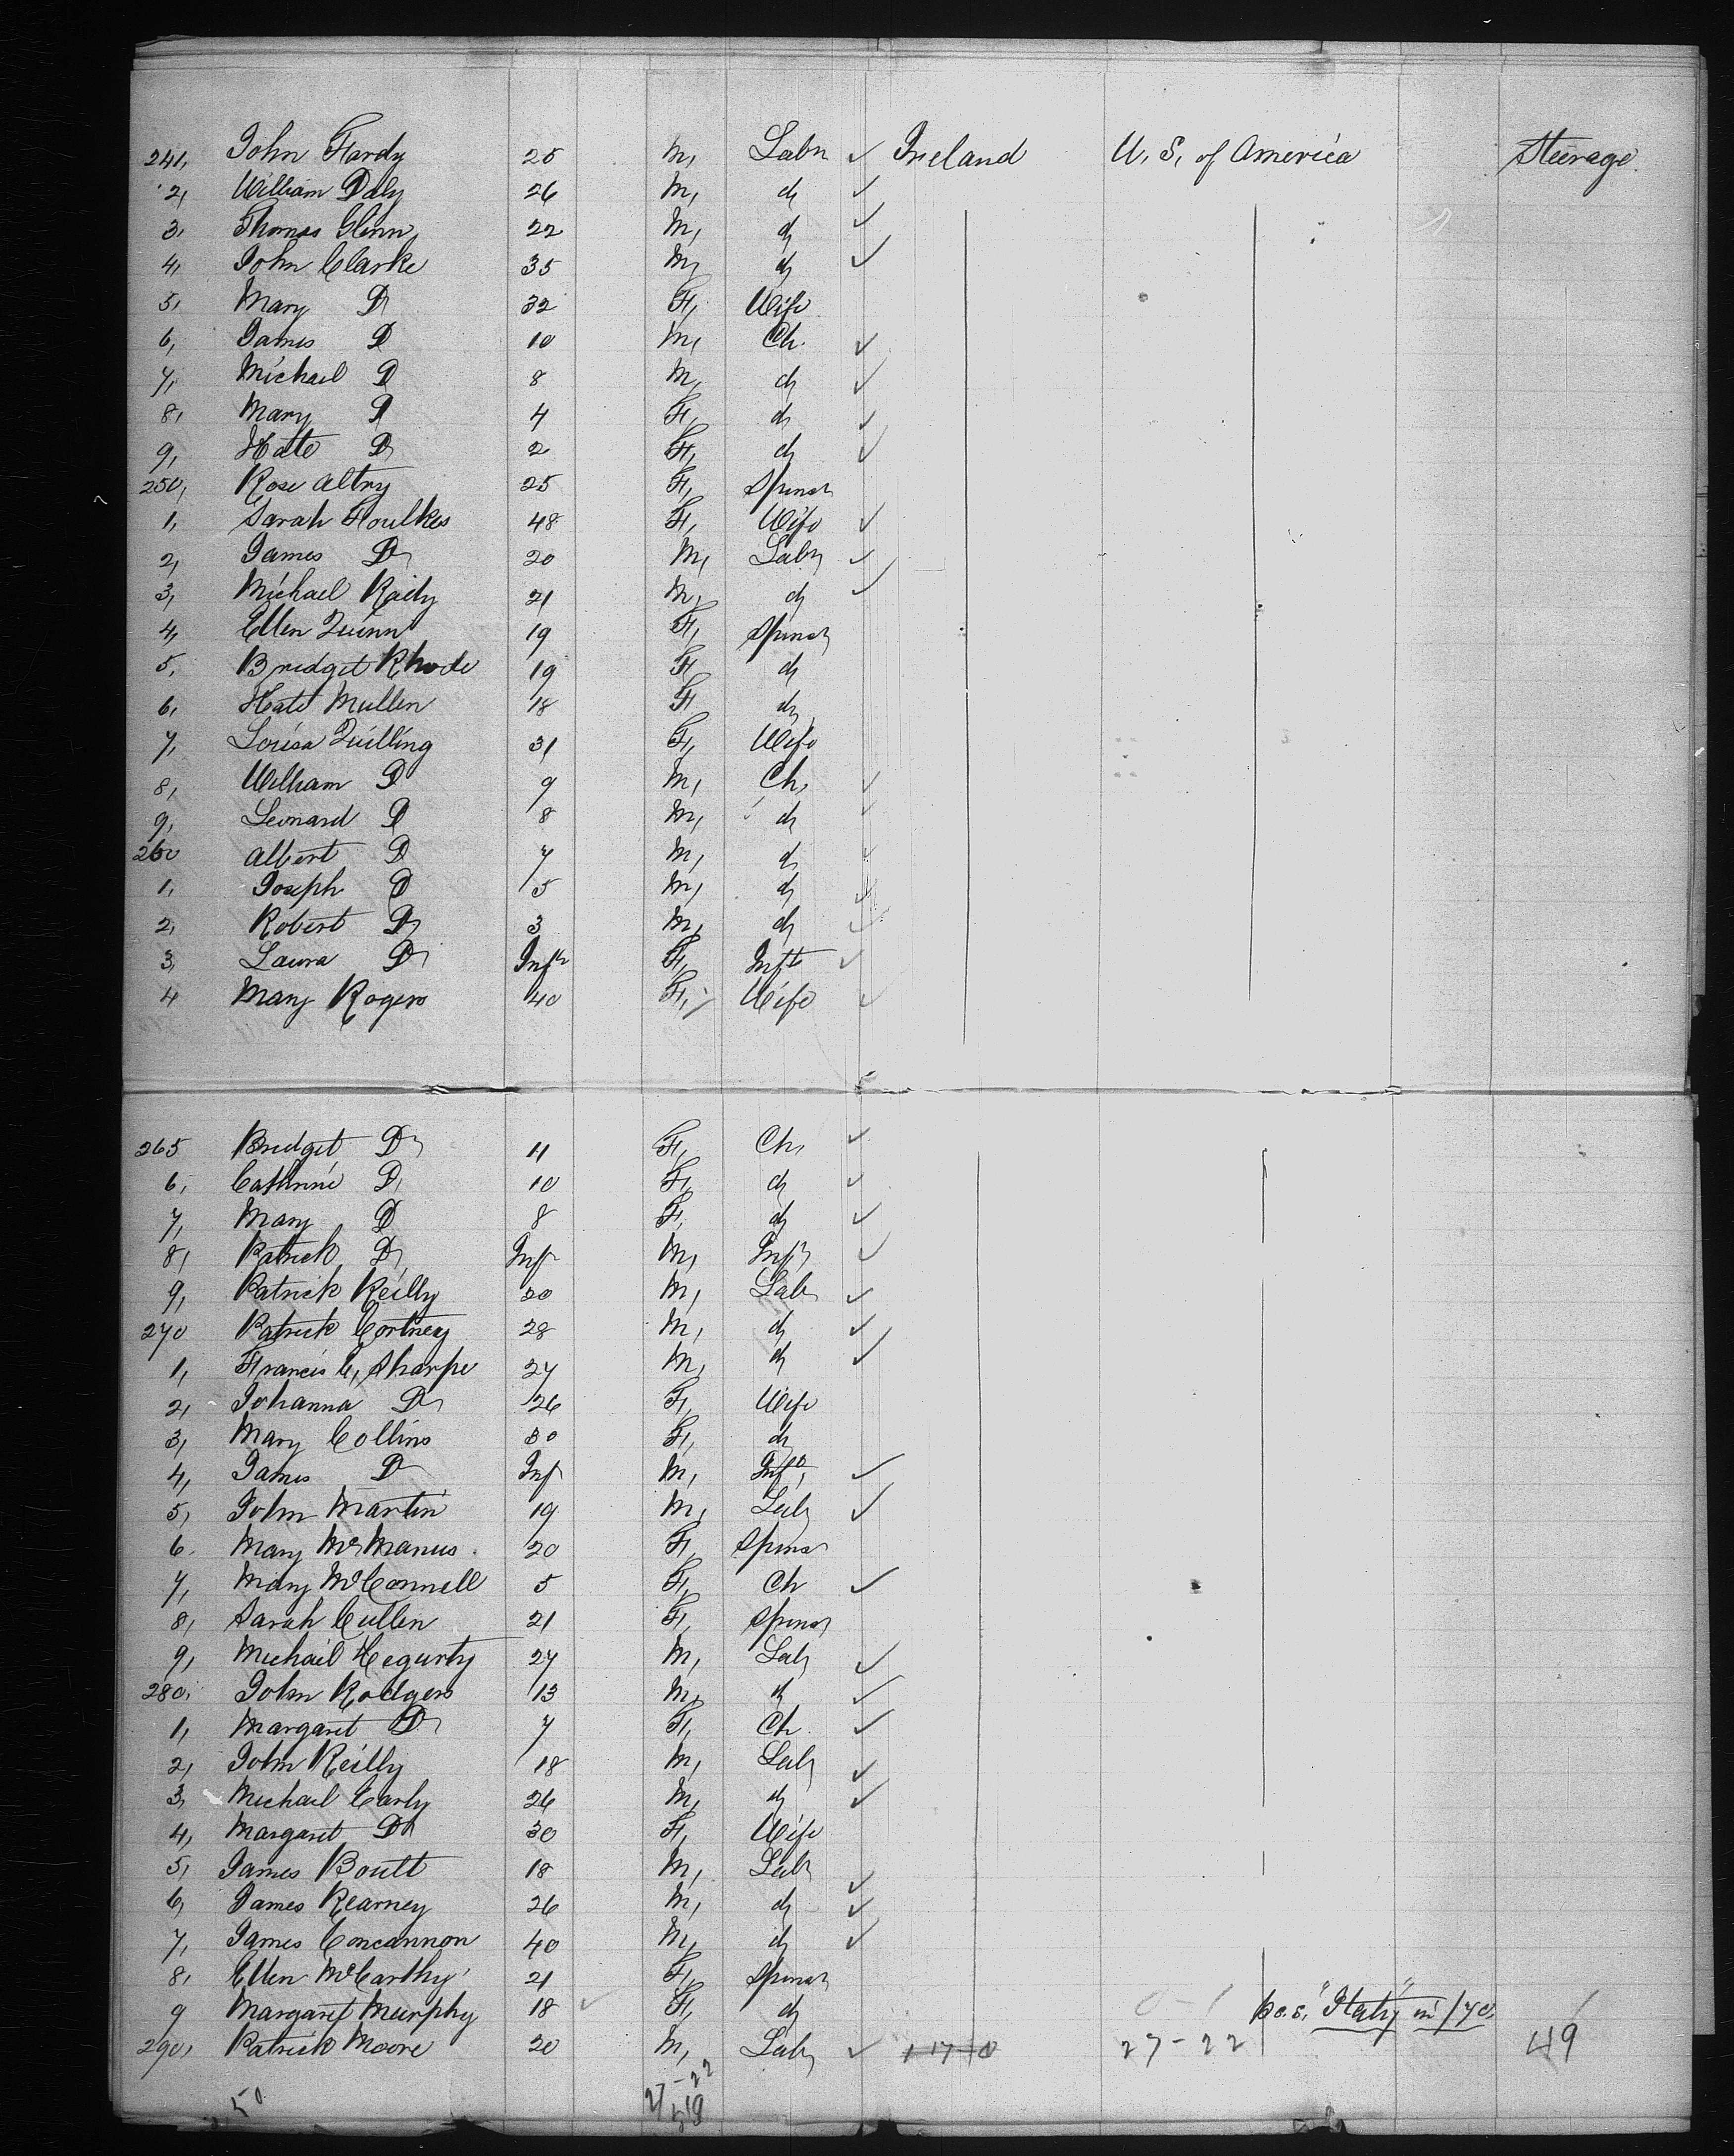 241, John Hardy 25 M, Labr ✓ Ireland U. S. of America Steerage.
2, William Daly 26 M, do ✓
3, Thomas Glinn 22 M, do ✓
4, John Clarke 35 M, do ✓
5, Mary Do 32 F, Wife
6, James Do 10 M, Ch. ✓
7, Michael Do 8 M, do ✓
8, Mary Do 4 F, do ✓
9, Kate Do 2 F, do ✓
250, Rose Altry 25 F, Spinsr
1, Sarah Foulkes 48 F, Wife ✓
2, James Do 20 M, Labr ✓
3, Michael Raily 21 M, do ✓
4, Ellen Quinn 19 F, Spinsr
5, Bridget Rhode 19 F, do
6, Kate Mullen 18 F, do
7, Louisa Quilling 31 F, Wife
8, William Do 9 M, Ch, ✓
9, Leonard Do 8 M, do ✓
260 Albert Do 7 M, do ✓
1, Joseph Do 5 M, do ✓
2, Robert Do 3 M, do ✓
3, Laura Do Inft F, Inft ✓
4 Mary Rogers 40 F, Wife ✓
265 Bridget Do 11 F, Ch, ✓
6, Cathrine Do 10 F, do ✓
7, Mary Do 8 F, do ✓
8, Patrick Do Inft M, Inft ✓
9, Patrick Reilly 20 M, Labr ✓
270 Patrick Cortney 28 M, do ✓
1, Francis C, Sharpe 27 M, do ✓
2, Johanna Do 26 F, Wife
3, Mary Collins 30 F, do
4, James Do Inft M, Inft, ✓
5, John Martin 19 M, Labr ✓
6. Mary McManus 20 F, Spinsr
7, Mary McConnell 5 F, Ch ✓
8, Sarah Cullen 21 F, Spinsr
9, Michail Hegurty 27 M, Labr ✓
280, John Rodgers 13 M, do ✓
1, Margaret Do 7 F, Ch. ✓
2, John Reilly 18 M, Labr ✓
3, Michael Carly 26 M, do ✓
4, Margaret Do 30 F, Wife
5, James Boutt 18 M, Labr ✓
6, James Kearney 26 M, do ✓
7, James Concannon 40 M, do ✓
8, Ellen McCarthy 21 F, Spinsr
9 Margaret Murphy 18 ✓ F, do "Italy" in /70
290, Patrick Moore 20 M, Labr ✓ 27-22 49
50 27-22